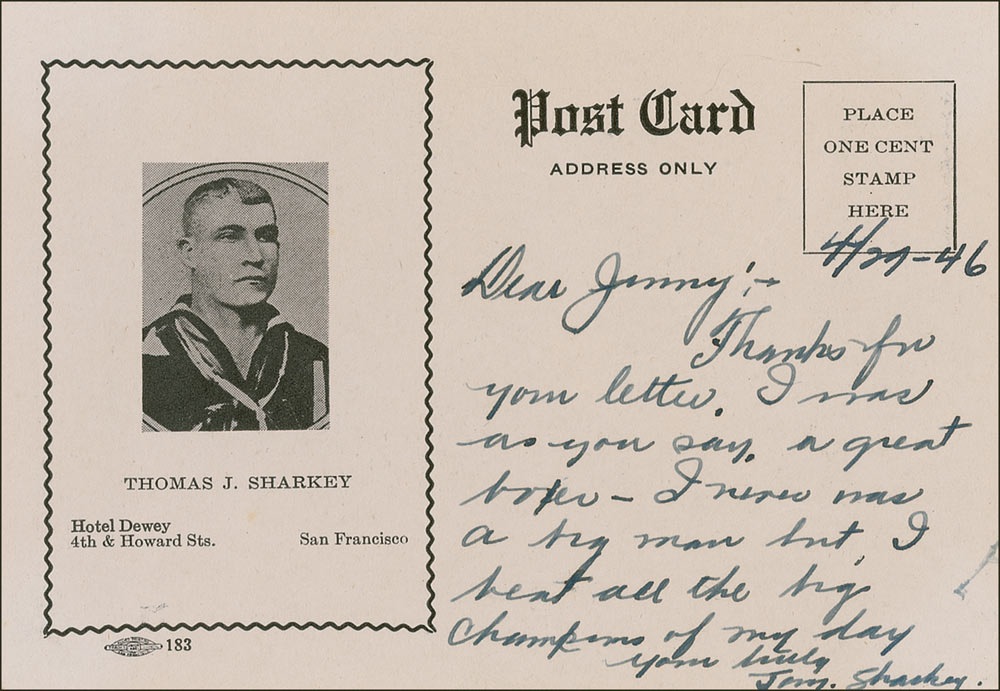 Post Card
ADDRESS ONLY
PLACE
ONE CENT
STAMP
HERE
THOMAS J. SHARKEY
Hotel Dewey
4th & Howard Sts.
San Francisco
183
4/29-46
Dear Jimmy:-
Thanks for
your letter. I was
as you say, a great
boxer - I never was
a big man but, I
beat all the big
champions of my day
Your truly
Tom. Sharkey.